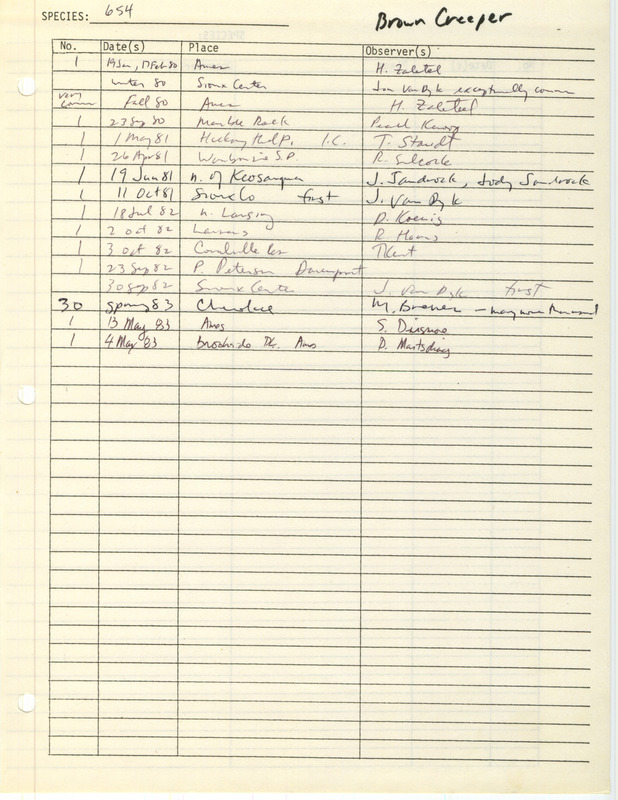 SPECIES: 654
Brown Creeper
No. Date(s) Place Observer(s)
1 19 Jan, 17 Feb 80 Ames H. Zaletel
winter 80 Sioux Center Jon Van Dyk exceptionally common
very common Fall 80 Ames H. Zaletel
1 23 Sep 80 Marble Rock Pearl Knoop
1 1 May 81 Hickory Hill P. I.C. T. Staudt
1 26 Apr 81 S.P. R. Silcock
1 19 Jun 81 n. of Keosauqua J. Sandrock, Judy Sandrock
1 11 Oct 81 Sioux Co first J. Van Dyk
1 18 Jul 82 n. Lansing D. Koenig
1 2 Oct 82 Larrows R
1 3 Oct 82 Coralville Res T Kent
1 23 Sep 82 P. Peterson Davenport
30 Sep 82 Sioux Center J. Van Dyk first
30 spring 83 Cherokee M. Brewer - many more than usual
1 13 May 83 Ames S. Dinsmore
1 4 May 83 Brookside Pk. Ames D.